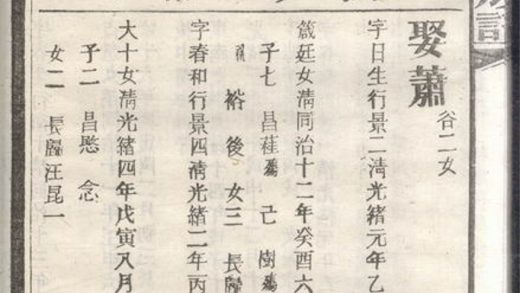 娶蕭
谷二女
字日生行景二清光緒元年乙
箴廷女清同治十二年癸酉六
子七 昌 己 樹
裕 後 女三 長歸
字春和行景四清光緒二年丙
大十女清光緒四年戊寅八月
子二 昌 念
女二 長歸汪昆一